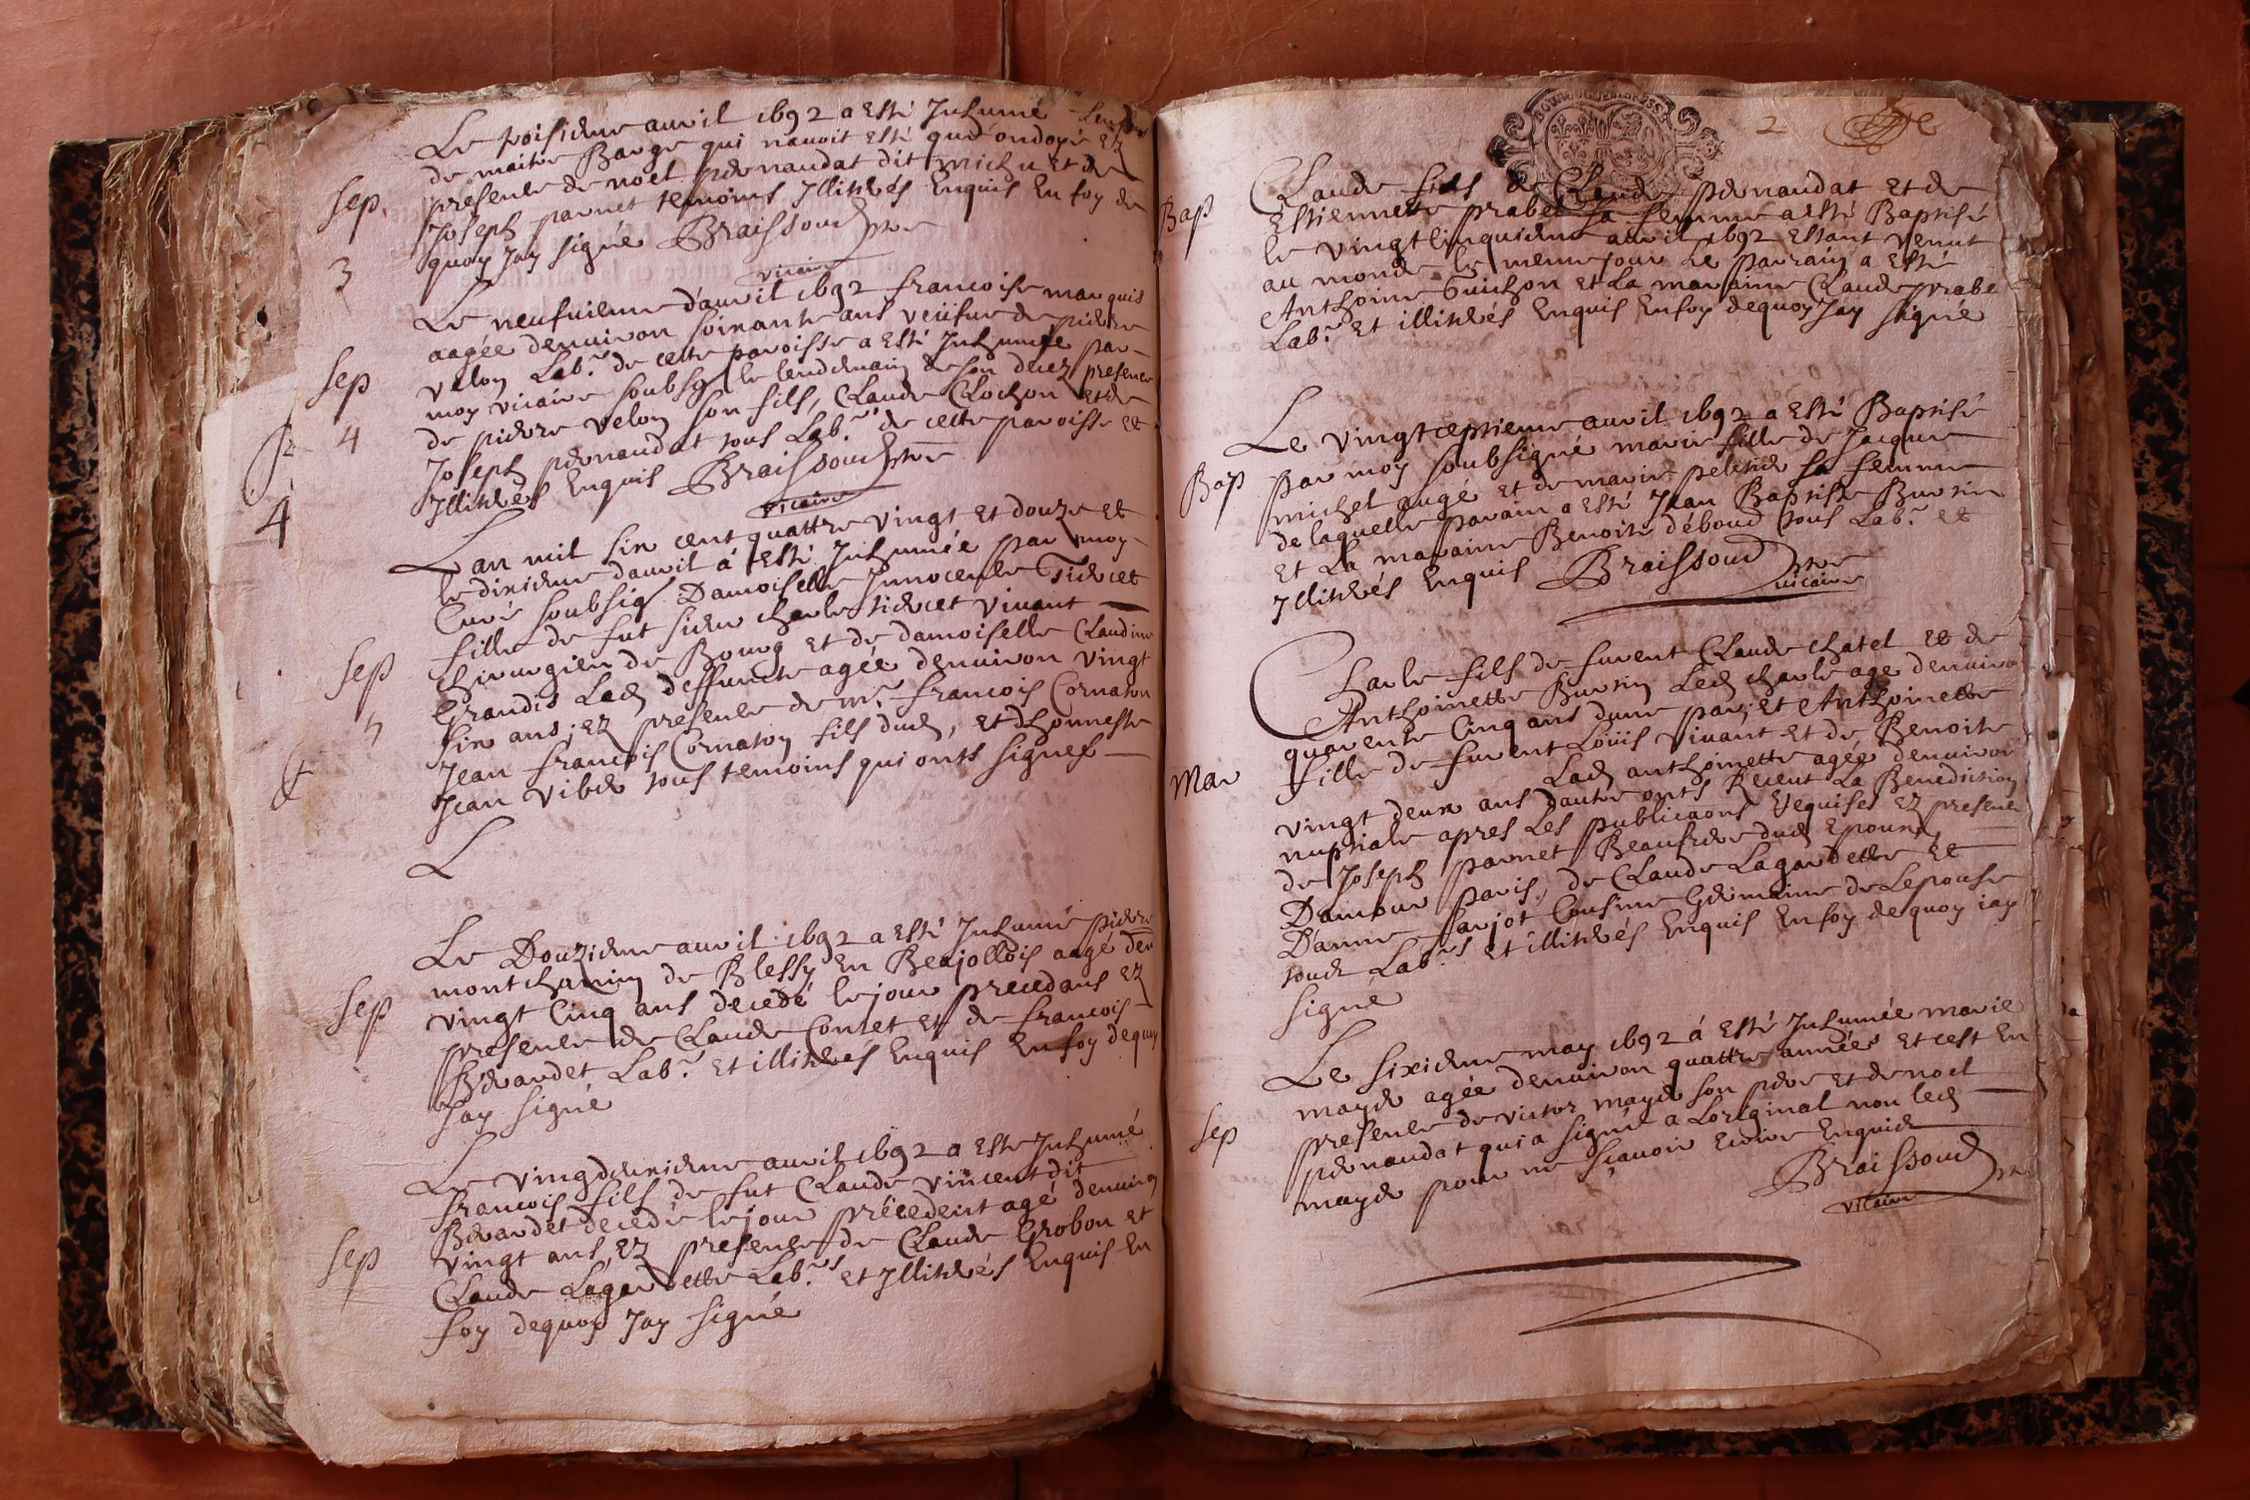 Le troisieme auril 1692 a Esté Inhumé Lenfan
de maitre Barge qui nauoit Esté que ondoyé Ez
presence de noel pernaudat dit michu et de
Sep. Joseph parnet temoins Illitérés Enquis En foy de
quoy Jay signé Braissoud ptre
3 vicaire
Le neufuieme d'auril 1692 francoise marquis
aagée denuiron soixante ans veüfue de pierre
Sep velon Lab.r de cette paroisse a Esté Inhumée par
moy vicaire soubsg le lendemain de son decez presence
4 de pierre velon son fils, Claude Clochon et de
Joseph pernaudat tous Lab.r de cette paroisse et
Illitérés Enquis Braissoud ptre
4 vicaire
Lan mil six cent quattre vingt et douze et
le dixieme dauril á Esté Inhumée par moy
Curé soubsig Damoiselle Innocente Tiercet
fille de fut sieur charle tiercet viuant
Sep chirurgien de Bourg et de damoiselle Claudine
Grandis Lad deffuncte agée denuiron vingt
six ans, Ez presence de mr. francois Cornaton
Jean francois Cornaton fils dud, et dhonneste
Jean viber tous temoins qui onts signes
L
Le Douzieme auril 1692 a Esté Inhumé pierre
montchanin de Blessy En Beajollois aagé den
Sep vingt Cinq ans decedé le jour precedans Ez
presence de Claude Contet et de francois
Berardet Lab.r Et illiterés Enquis En foy dequoy
Jay signé
Le vingdeuxieme auril 1692 a Este Inhumé
francois fils de fut Claude vincent dit
Berardet decedé le jour précedent agé denuiron
Sep vingt ans, Ez presence de Claude Grobon et
Claude Lagardette Lab.rs et Illitérés Enquis En
foy dequoy Jay signé
2
Claude fils de Claude pernaudat et de
Bap Estiennette prabel sa femme a esté Baptisé
le vingtcinquieme auril 1692 Estant venut
au monde le meme jour Le parrain a Esté
Anthoine Guichon et La maraine Claude prabe
Lab.r Et illitérés Enquis En foy dequoy Jay signé
Le vingtceptieme auril 1692 a Esté Baptisé
par moy soubsigné marie fille de Jacque
Bap michel augé et de marie peletier sa femme
de laquelle parain a Esté Jean Baptiste Burtin
et La maraine Benoite déboud tous Lab.r et
Illitérés Enquis Braissoud ptre
vicaire
Charle fils de furent Claude chatel et de
Anthoinette Burtin Led charle age denuiron
quarente Cinq ans dune par, Et Anthoinette
fille de furent Loüis viuant et de Benoite
Mar Lad anthoinette agée denuiron
vingt deux ans dautre onts Receut La Benediction
nuptiale apres Les publicaons Requises Ez presence
de Joseph parnet Beaufrere dud Epoux,
Damour paris, de Claude Lagardette et
Danne sarjot Cousine Germaine de Lepouse
tous Lab.rs et illitérés Enquis En foy de quoy jay
signé
Le sixieme may 1692 á Esté Inhumée marie
mayer agée denuiron quattre années et cest En
Sep presence de victor mayer son pere et de noel
pernaudat qui a signé a Loriginal non led
mayer pour ne sçauoir Ecrire Enquis
Braissoud ptre
vicaire